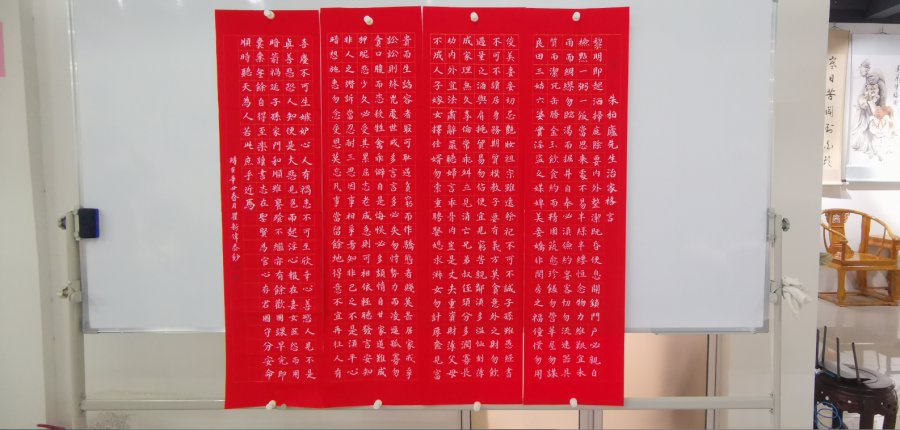 朱柏廬先生治家格言
黎明即起洒掃庭除要內外整潔既昏便息關鎖門戶必親自
檢點一粥一飯當思來處不易半絲半縷恒念物力維艱宜未
雨而綢繆勿臨渴而掘井自奉必須儉約宴客切勿流連器具
質而潔瓦缶勝金玉飲約而精園蔬愈珍饈勿營華屋勿謀
良田三姑六婆實淫盜之媒婢美妾嬌非閨房之福僮僕勿用
俊美妻妾切忌艷妝祖宗雖遠祭祀不可不誠子孫雖愚經書
不可不讀居身務期質樸教子要有義方莫貪意外之財勿飲
過量之酒與肩挑貿易勿佔便宜見窮苦親鄰須多溫恤刻薄
成家理無久享倫常乖舛立見消亡兄弟叔侄須分多潤寡長
幼內外宜法肅辭嚴聽婦言乖骨肉豈是丈夫重資財薄父母
不成人子嫁女擇佳婿勿索重聘娶媳求淑女勿計厚奩見富
貴而生諂容者最可恥遇貧窮而作驕態者賤莫甚居家戒爭
訟訟則終凶處世戒多言言多必失勿恃勢力而凌逼孤寡勿
貪口腹而恣殺牲禽乖僻自是悔誤必多頹惰自甘家道難成
狎昵惡少久必受其累屈志老成急則可相依輕聽發言安知
非人之譖訴當忍耐三思因事相爭焉知非己之不是須平心
暗想施惠勿念受恩莫忘凡事當留餘地得意不宜再往人有
喜慶不可生嫉妒心人有禍患不可生欣幸心善欲人見不是
真善惡恐人知便是大惡見色而起淫心報在妻女匿怨而用
暗箭禍延子孫家門和順雖饔飧不繼亦有餘歡國課早完即
囊橐無餘自得至樂讀書志在聖賢為官心存君國守分安命
順時聽天為人若此庶乎近焉